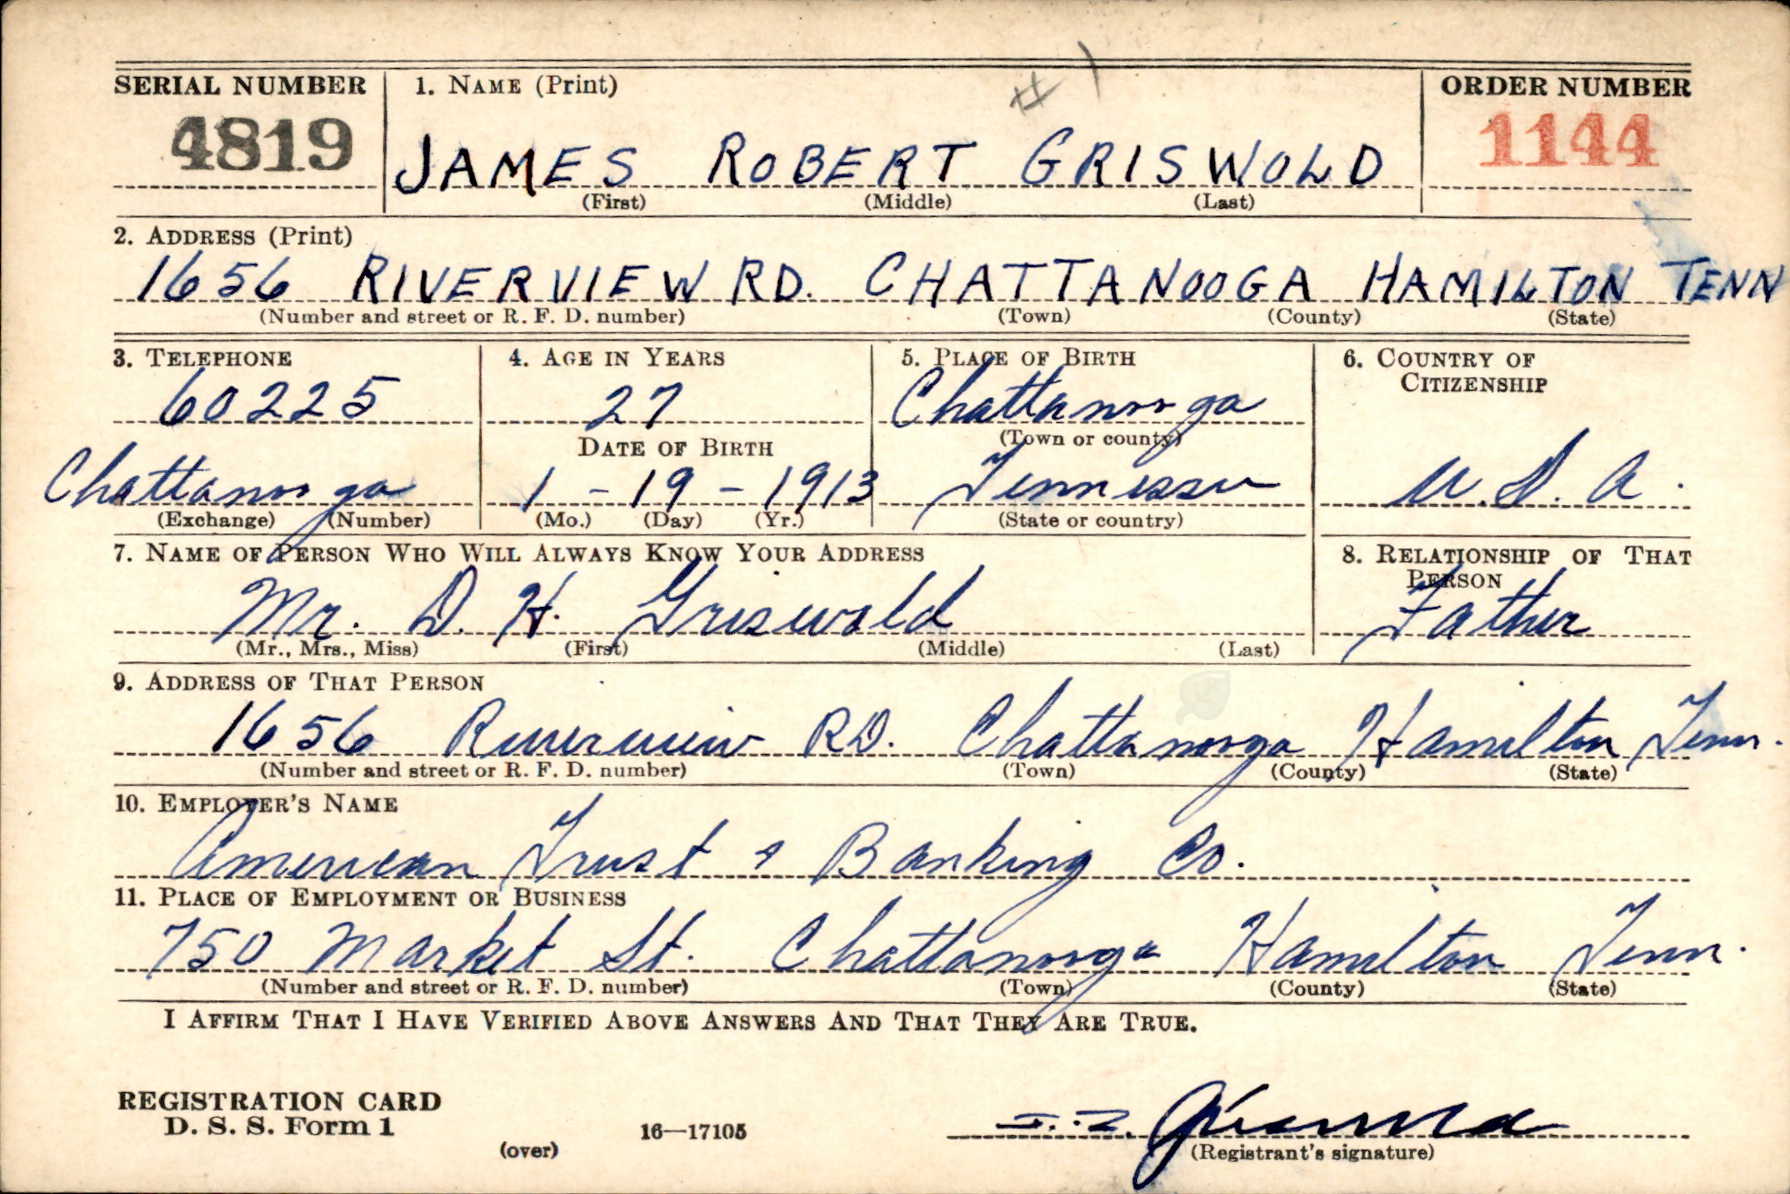 # 1
SERIAL NUMBER 1. NAME (Print) ORDER NUMBER
4819 JAMES ROBERT GRISWOLD 1144
(First) (Middle) (Last)
2. ADDRESS (Print)
1656 RIVERVIEW RD. CHATTANOOGA HAMILTON TENN
(Number and street or R. F. D. number) (Town) (County) (State)
3. TELEPHONE 4. AGE IN YEARS 5. PLACE OF BIRTH 6. COUNTRY OF
CITIZENSHIP
60225 27 Chattanooga
DATE OF BIRTH (Town or county)
Chattanooga 1 - 19 - 1913 Tennessee U. S. A.
(Exchange) (Number) (Mo.) (Day) (Yr.) (State or country)
7. NAME OF PERSON WHO WILL ALWAYS KNOW YOUR ADDRESS 8. RELATIONSHIP OF THAT
PERSON
Mr. D. H. Griswold Father
(Mr., Mrs., Miss) (First) (Middle) (Last)
9. ADDRESS OF THAT PERSON
1656 Riverview RD. Chattanooga Hamilton Tenn.
(Number and street or R. F. D. number) (Town) (County) (State)
10. EMPLOYER'S NAME
American Trust & Banking Co.
11. PLACE OF EMPLOYMENT OR BUSINESS
750 Market St. Chattanooga Hamilton Tenn.
(Number and street or R. F. D. number) (Town) (County) (State)
I AFFIRM THAT I HAVE VERIFIED ABOVE ANSWERS AND THAT THEY ARE TRUE.
REGISTRATION CARD
D. S. S. Form 1 J. R. Griswold
(over) 16—17105 (Registrant's signature)